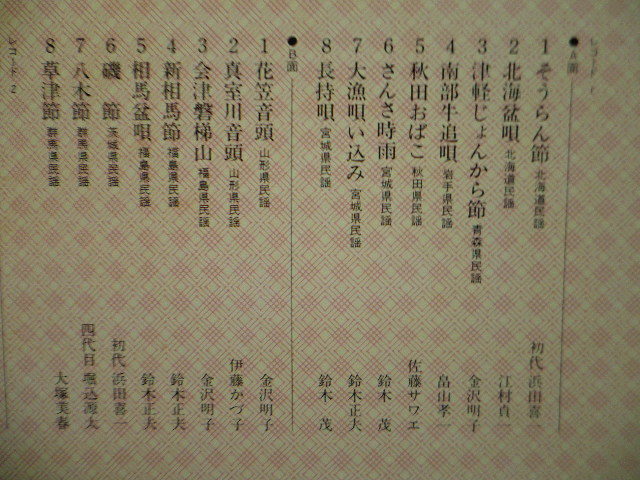 レコード 1
●A面
1 そうらん節 北海道民謡 初代 浜田喜一
2 北海盆唄 北海道民謡 江村貞一
3 津軽じょんから節 青森県民謡 金沢明子
4 南部牛追唄 岩手県民謡 畠山孝一
5 秋田おばこ 秋田県民謡 佐藤サワエ
6 さんさ時雨 宮城県民謡 鈴木 茂
7 大漁唄い込み 宮城県民謡 鈴木正夫
8 長持唄 宮城県民謡 鈴木 茂
●B面
1 花笠音頭 山形県民謡 金沢明子
2 真室川音頭 山形県民謡 伊藤かづ子
3 会津磐梯山 福島県民謡 金沢明子
4 新相馬節 福島県民謡 鈴木正夫
5 相馬盆唄 福島県民謡 鈴木正夫
6 磯 節 茨城県民謡 初代 浜田喜一
7 八木節 群馬県民謡 四代目 堀込源太
8 草津節 群馬県民謡 大塚美春
レコード 2